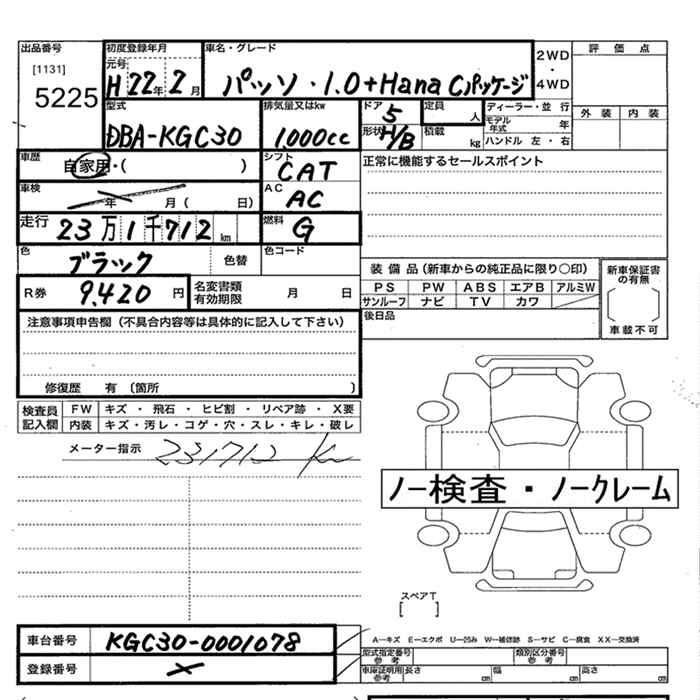 出品番号 初度登録年月 車名・グレード 2WD・4WD 評価点
[1131] 元号
5225 H22年2月 パッソ・1.0+Hana Cパッケージ
型式 排気量又はkw ドア 5 定員 人 ディーラー・並行 外装 内装
DBA-KGC30 1,000cc 形状 H/B 積載 kg モデル年式 年
ハンドル 左・右
車歴 自家用・( ) シフト CAT 正常に機能するセールスポイント
車検 年 月( 日) AC AC
走行 23万1千712km 燃料 G
色 ブラック 色替 色コード
装備品(新車からの純正品に限り○印) 新車保証書の有無
R券 9,420円 名変書類有効期限 月 日 PS PW ABS エアB アルミW
サンルーフ ナビ TV カワ 車載不可
注意事項申告欄(不具合内容等は具体的に記入して下さい) 後日品
修復歴 有 (箇所 )
検査員記入欄 FW キズ・飛石・ヒビ割・リペア跡・X要
内装 キズ・汚レ・コゲ・穴・スレ・キレ・破レ
メーター指示 231712 Km
ノー検査・ノークレーム
スペアT
[ ]
車台番号 KGC30-0001078 A―キズ E―エクボ U―凹み W―補修跡 S―サビ C―腐食 XX―交換済
登録番号 × 型式指定番号 参考 類別区分番号 参考
車庫証明用 参考 長さ cm 幅 cm 高さ cm